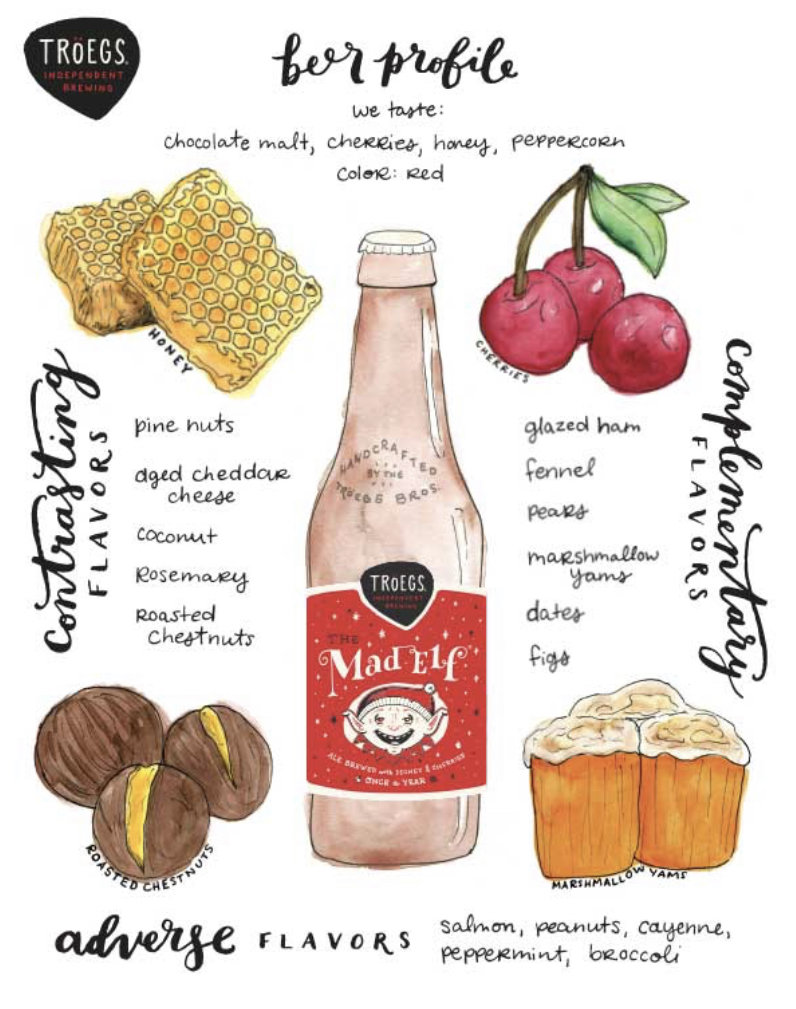 TRÖEGS
INDEPENDENT
BREWING
beer profile
we taste:
chocolate malt, cherries, honey, peppercorn
color: red
HONEY
CHERRIES
contrasting
FLAVORS
pine nuts
aged cheddar
cheese
coconut
Rosemary
Roasted
Chestnuts
HANDCRAFTED
BY THE
TRÖEGS BROS.
TRÖEGS
INDEPENDENT
BREWING
THE
Mad Elf
ALE BREWED with HONEY & CHERRIES
ONCE a YEAR
complementary
FLAVORS
glazed ham
fennel
pears
marshmallow
yams
dates
figs
ROASTED CHESTNUTS
MARSHMALLOW YAMS
adverse FLAVORS
salmon, peanuts, cayenne,
peppermint, broccoli